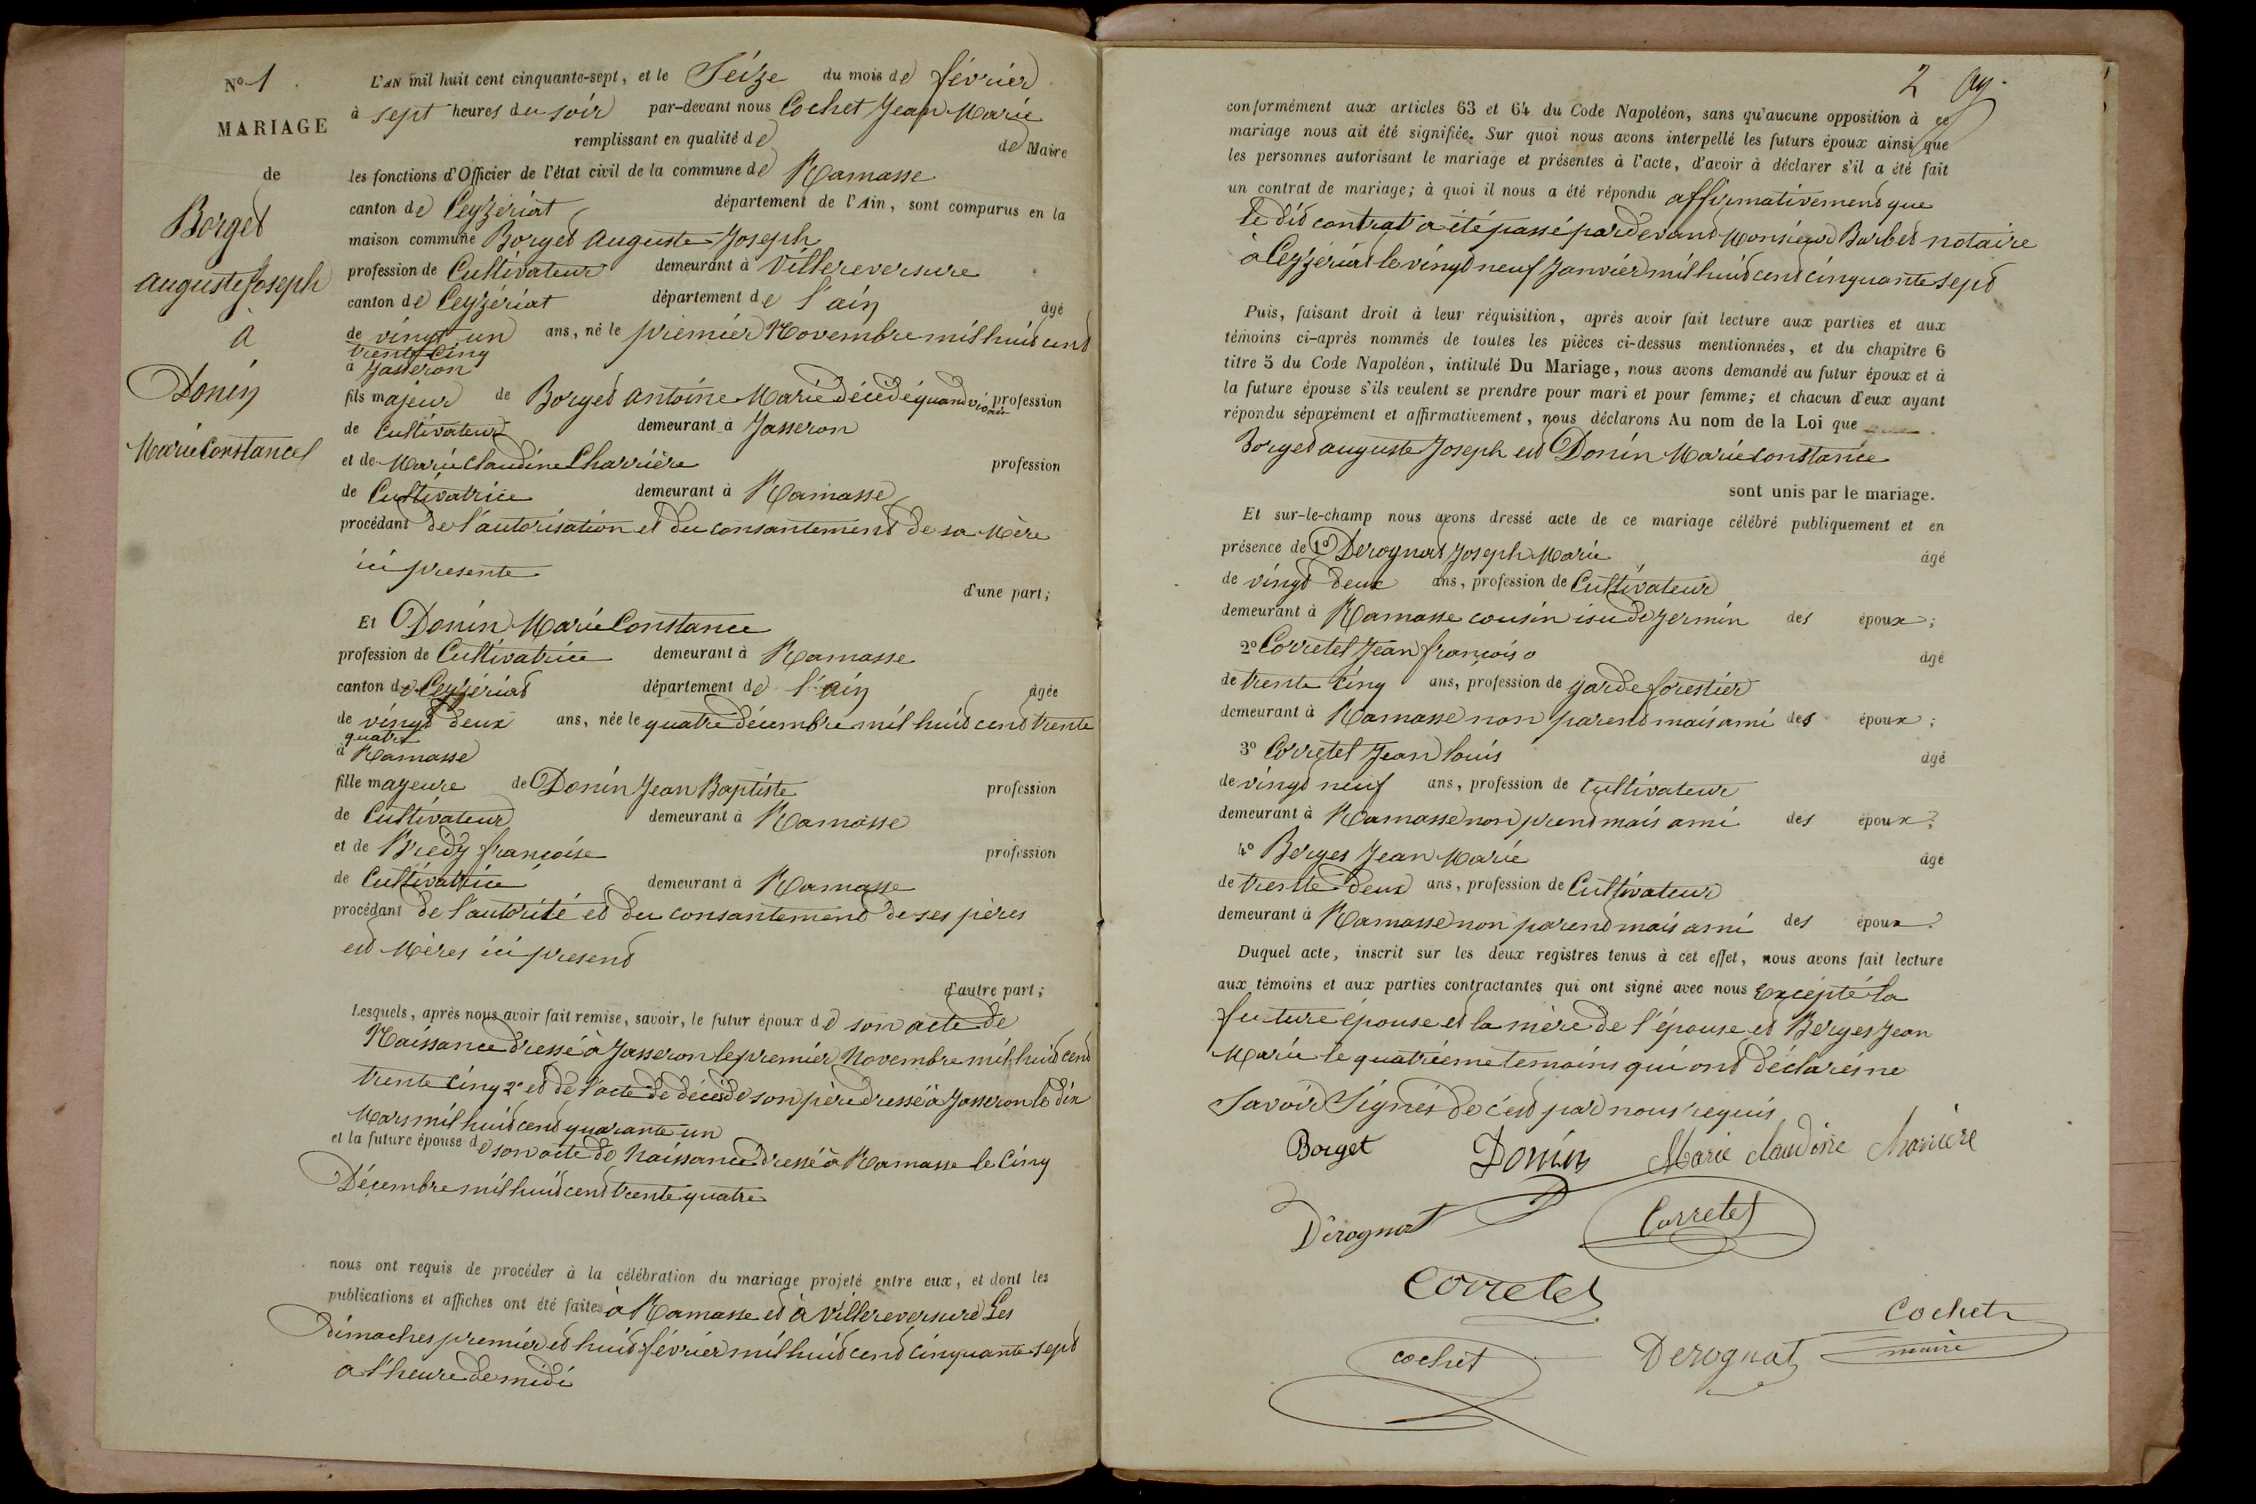 N° 1
MARIAGE
de
Borget
auguste Joseph
à
Donin
Marie Constance
L'AN mil huit cent cinquante-sept, et le Seize du mois de février
à sept heures du soir par-devant nous Cochet Jean Marie
remplissant en qualité de de Maire
les fonctions d'Officier de l'état civil de la commune de Ramasse
canton de Ceyzériat département de l'Ain, sont comparus en la
maison commune Borget auguste Joseph
profession de Cultivateur demeurant à Villereversure
canton de Ceyzériat département de l'ain âgé
de vingt un ans, né le premier Novembre mil huit cent
trente cinq
à Jasseron
fils majeur de Borget antoine Marie décédé quand vivait profession
de Cultivateur demeurant à Jasseron
et de Marie Claudine Charrière profession
de Cultivatrice demeurant à Ramasse
procédant de l'autorisation et du consantement de sa Mère
ici presente
d'une part;
Et Donin Marie Constance
profession de Cultivatrice demeurant à Ramasse
canton de Ceyzériat département de l'ain âgée
de vingt deux ans, née le quatre décembre mil huit cent trente
quatre
à Ramasse
fille mageure de Donin Jean Baptiste profession
de Cultivateur demeurant à Ramasse
et de Bredy françoise profession
de Cultivatrice demeurant à Ramasse
procédant de l'autorité et du consantement de ses pères
et Mères ici present
d'autre part;
Lesquels, après nous avoir fait remise, savoir, le futur époux de son acte de
Naissance dressé à Jasseron le premier Novembre mil huit cent
trente cinq 2° et de l'acte de décès de son père dressé à Jasseron le dix
Mars mil huit cent quarante un
et la future épouse de son acte de Naissance dressé à Ramasse le Cinq
Décembre mil huit cent trente quatre
nous ont requis de procéder à la célébration du mariage projeté entre eux, et dont les
publications et affiches ont été faites à Ramasse et à Villereversure Les
dimaches premier et huit février mil huit cent cinquante sept
a l'heure de midi
2
conformément aux articles 63 et 64 du Code Napoléon, sans qu'aucune opposition à ce
mariage nous ait été signifiée. Sur quoi nous avons interpellé les futurs époux ainsi que
les personnes autorisant le mariage et présentes à l'acte, d'avoir à déclarer s'il a été fait
un contrat de mariage; à quoi il nous a été répondu affirmativement que
le dit contrat a été passé pardevant Monsieur Barbet notaire
à Ceyzériat le vingt neuf Janvier mil huit cent cinquante sept
Puis, faisant droit à leur réquisition, après avoir fait lecture aux parties et aux
témoins ci-après nommés de toutes les pièces ci-dessus mentionnées, et du chapitre 6
titre 5 du Code Napoléon, intitulé Du Mariage, nous avons demandé au futur époux et à
la future épouse s'ils veulent se prendre pour mari et pour femme; et chacun d'eux ayant
répondu séparément et affirmativement, nous déclarons Au nom de la Loi que
Borget auguste Joseph et Donin Marie constance
sont unis par le mariage.
Et sur-le-champ nous avons dressé acte de ce mariage célébré publiquement et en
présence de 1° Derognat Joseph Marie âgé
de vingt deux ans, profession de Cultivateur
demeurant à Ramasse cousin isu de germin des époux;
2° Corretel Jean françois âgé
de trente cinq ans, profession de garde forestier
demeurant à Ramasse non parent mais ami des époux;
3° Corretel Jean louis âgé
de vingt neuf ans, profession de Cultivateur
demeurant à Ramasse non prent mais ami des époux;
4° Berges Jean Marie âgé
de trente deux ans, profession de Cultivateur
demeurant à Ramasse non parent mais ami des époux;
Duquel acte, inscrit sur les deux registres tenus à cet effet, nous avons fait lecture
aux témoins et aux parties contractantes qui ont signé avec nous Excepté la
future épouse et la mère de l'épouse et Berges Jean
Marie le quatrième temoins qui ont déclarés ne
Savoir Signés de c'est par nous requis
Borget Donin Marie claudine Charriere
Dérognat Corretel
Corretel
cochet Derognat Cochet
maire